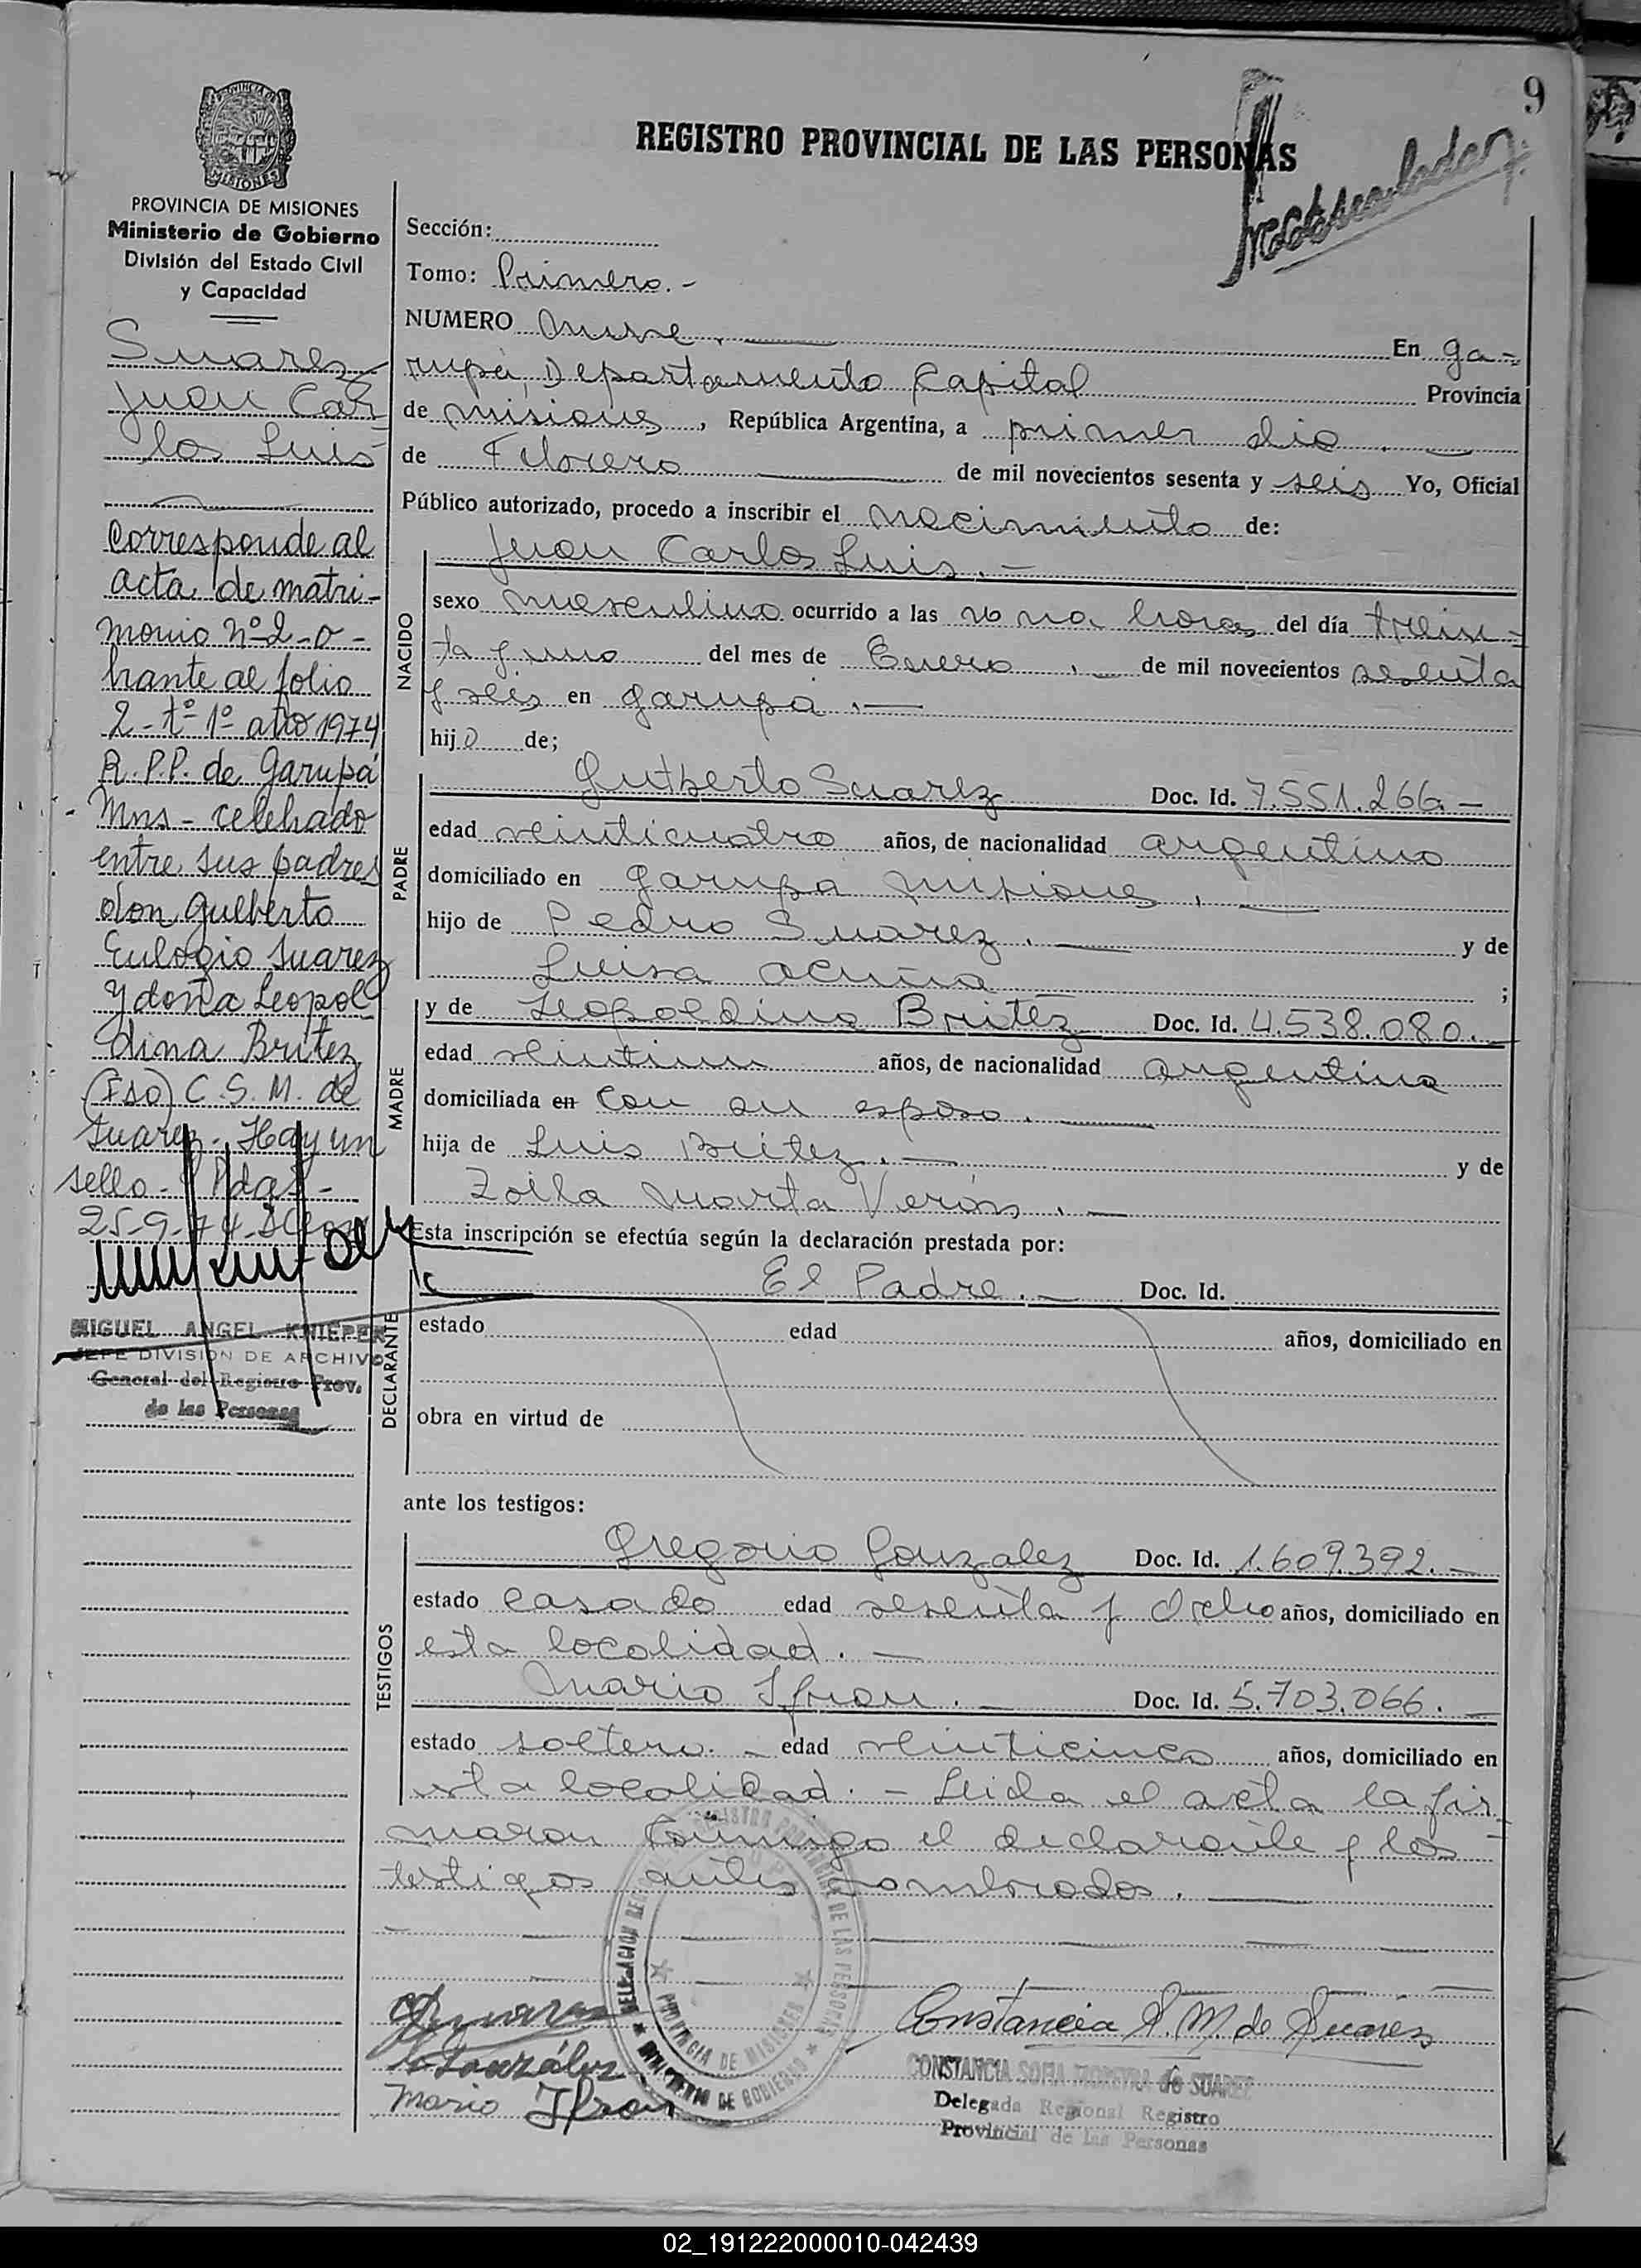 9
REGISTRO PROVINCIAL DE LAS PERSONAS
PROVINCIA DE
MISIONES
PROVINCIA DE MISIONES
Ministerio de Gobierno
División del Estado Civil
y Capacidad
Suarez
Juan Car
los Luis
Corresponde al
acta de matri-
monio nº 2-o-
brante al folio
2-tº 1º año 1974
R.P.P. de Garupá
Mns - celebrado
entre sus padres
don Gulberto
Eulogio Suarez
y doña Leopol
dina Britez
(Fdo) C. S. M. de
Suarez - Hay un
sello - Pdas -
25-9-74
MIGUEL ANGEL KNIEPER
JEFE DIVISION DE ARCHIVO
General del Registro Prov.
de las Personas
Sección:
Tomo: Primero.-
NUMERO nueve. En Ga-
rupá, Departamento Capital Provincia
de Misiones, República Argentina, a primer dia.
de Febrero de mil novecientos sesenta y seis Yo, Oficial
Público autorizado, procedo a inscribir el nacimiento de:
NACIDO
Juan Carlos Luis.-
sexo masculino ocurrido a las horas del día trein-
ta y uno del mes de Enero, de mil novecientos sesenta
y seis en Garupá.
hijo de;
PADRE
Gutberto Suarez Doc. Id. 7.551.266.-
edad veinticuatro años, de nacionalidad argentino
domiciliado en Garupá Misiones,
hijo de Pedro Suarez. y de
Luisa Acuña ;
MADRE
y de Leopoldina Britez Doc. Id. 4.538.080.
edad veintiun años, de nacionalidad argentina
domiciliada en con su esposo.
hija de Luis Britez.- y de
Zoila Marta Verón.
Esta inscripción se efectúa según la declaración prestada por:
DECLARANTE
El Padre.- Doc. Id.
estado edad años, domiciliado en
obra en virtud de
ante los testigos:
TESTIGOS
Gregorio Gonzalez Doc. Id. 1.609.392.-
estado casado edad sesenta y ocho años, domiciliado en
esta localidad.-
Mario Ifran.- Doc. Id. 5.703.066.
estado soltero.- edad veinticinco años, domiciliado en
esta localidad.- Leida el acta la fir
maron conmigo el declarante y los
testigos antes nombrados.
González
Mario Ifran
DELEGACION REGISTRO PROVINCIAL DE LAS PERSONAS
PROVINCIA DE MISIONES
MINISTERIO DE GOBIERNO
Constancia S. M. de Suárez
CONSTANCIA SOFIA MOREYRA de SUAREZ
Delegada Regional Registro
Provincial de las Personas
02_191222000010-042439